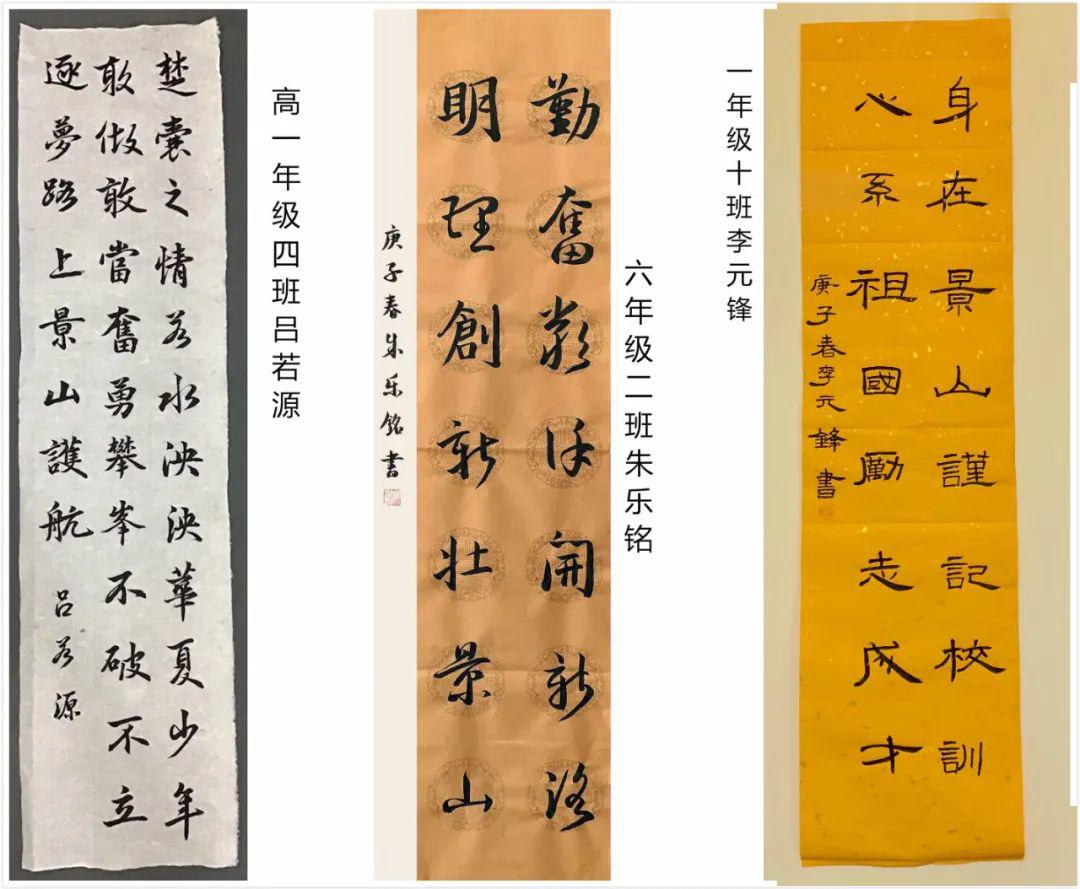 楚囊之情若水泱泱華夏少年
敢做敢當奮勇攀峯不破不立
逐夢路上景山護航 吕若源
高一年级四班吕若源
勤奮嚴謹開新路
明理創新壯景山
庚子春朱乐銘书
六年级二班朱乐铭
身在景山謹記校訓
心系祖國勵志成才
庚子春李元鋒書
一年级十班李元锋